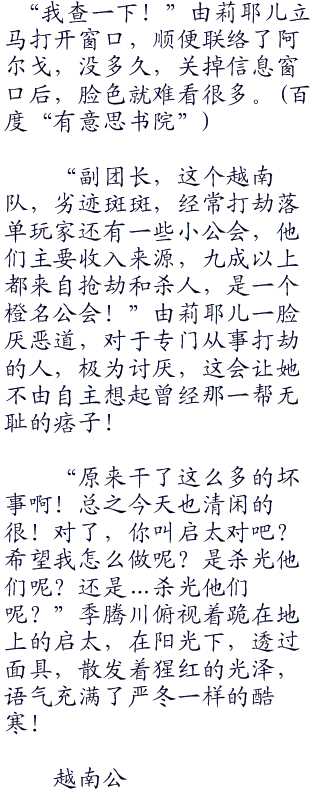 “我查一下！”由莉耶儿立
马打开窗口，顺便联络了阿
尔戈，没多久，关掉信息窗
口后，脸色就难看很多。(百
度“有意思书院”)
“副团长，这个越南
队，劣迹斑斑，经常打劫落
单玩家还有一些小公会，他
们主要收入来源，九成以上
都来自抢劫和杀人，是一个
橙名公会！”由莉耶儿一脸
厌恶道，对于专门从事打劫
的人，极为讨厌，这会让她
不由自主想起曾经那一帮无
耻的痞子！
“原来干了这么多的坏
事啊！总之今天也清闲的
很！对了，你叫启太对吧？
希望我怎么做呢？是杀光他
们呢？还是…杀光他们
呢？”季腾川俯视着跪在地
上的启太，在阳光下，透过
面具，散发着猩红的光泽，
语气充满了严冬一样的酷
寒！
越南公